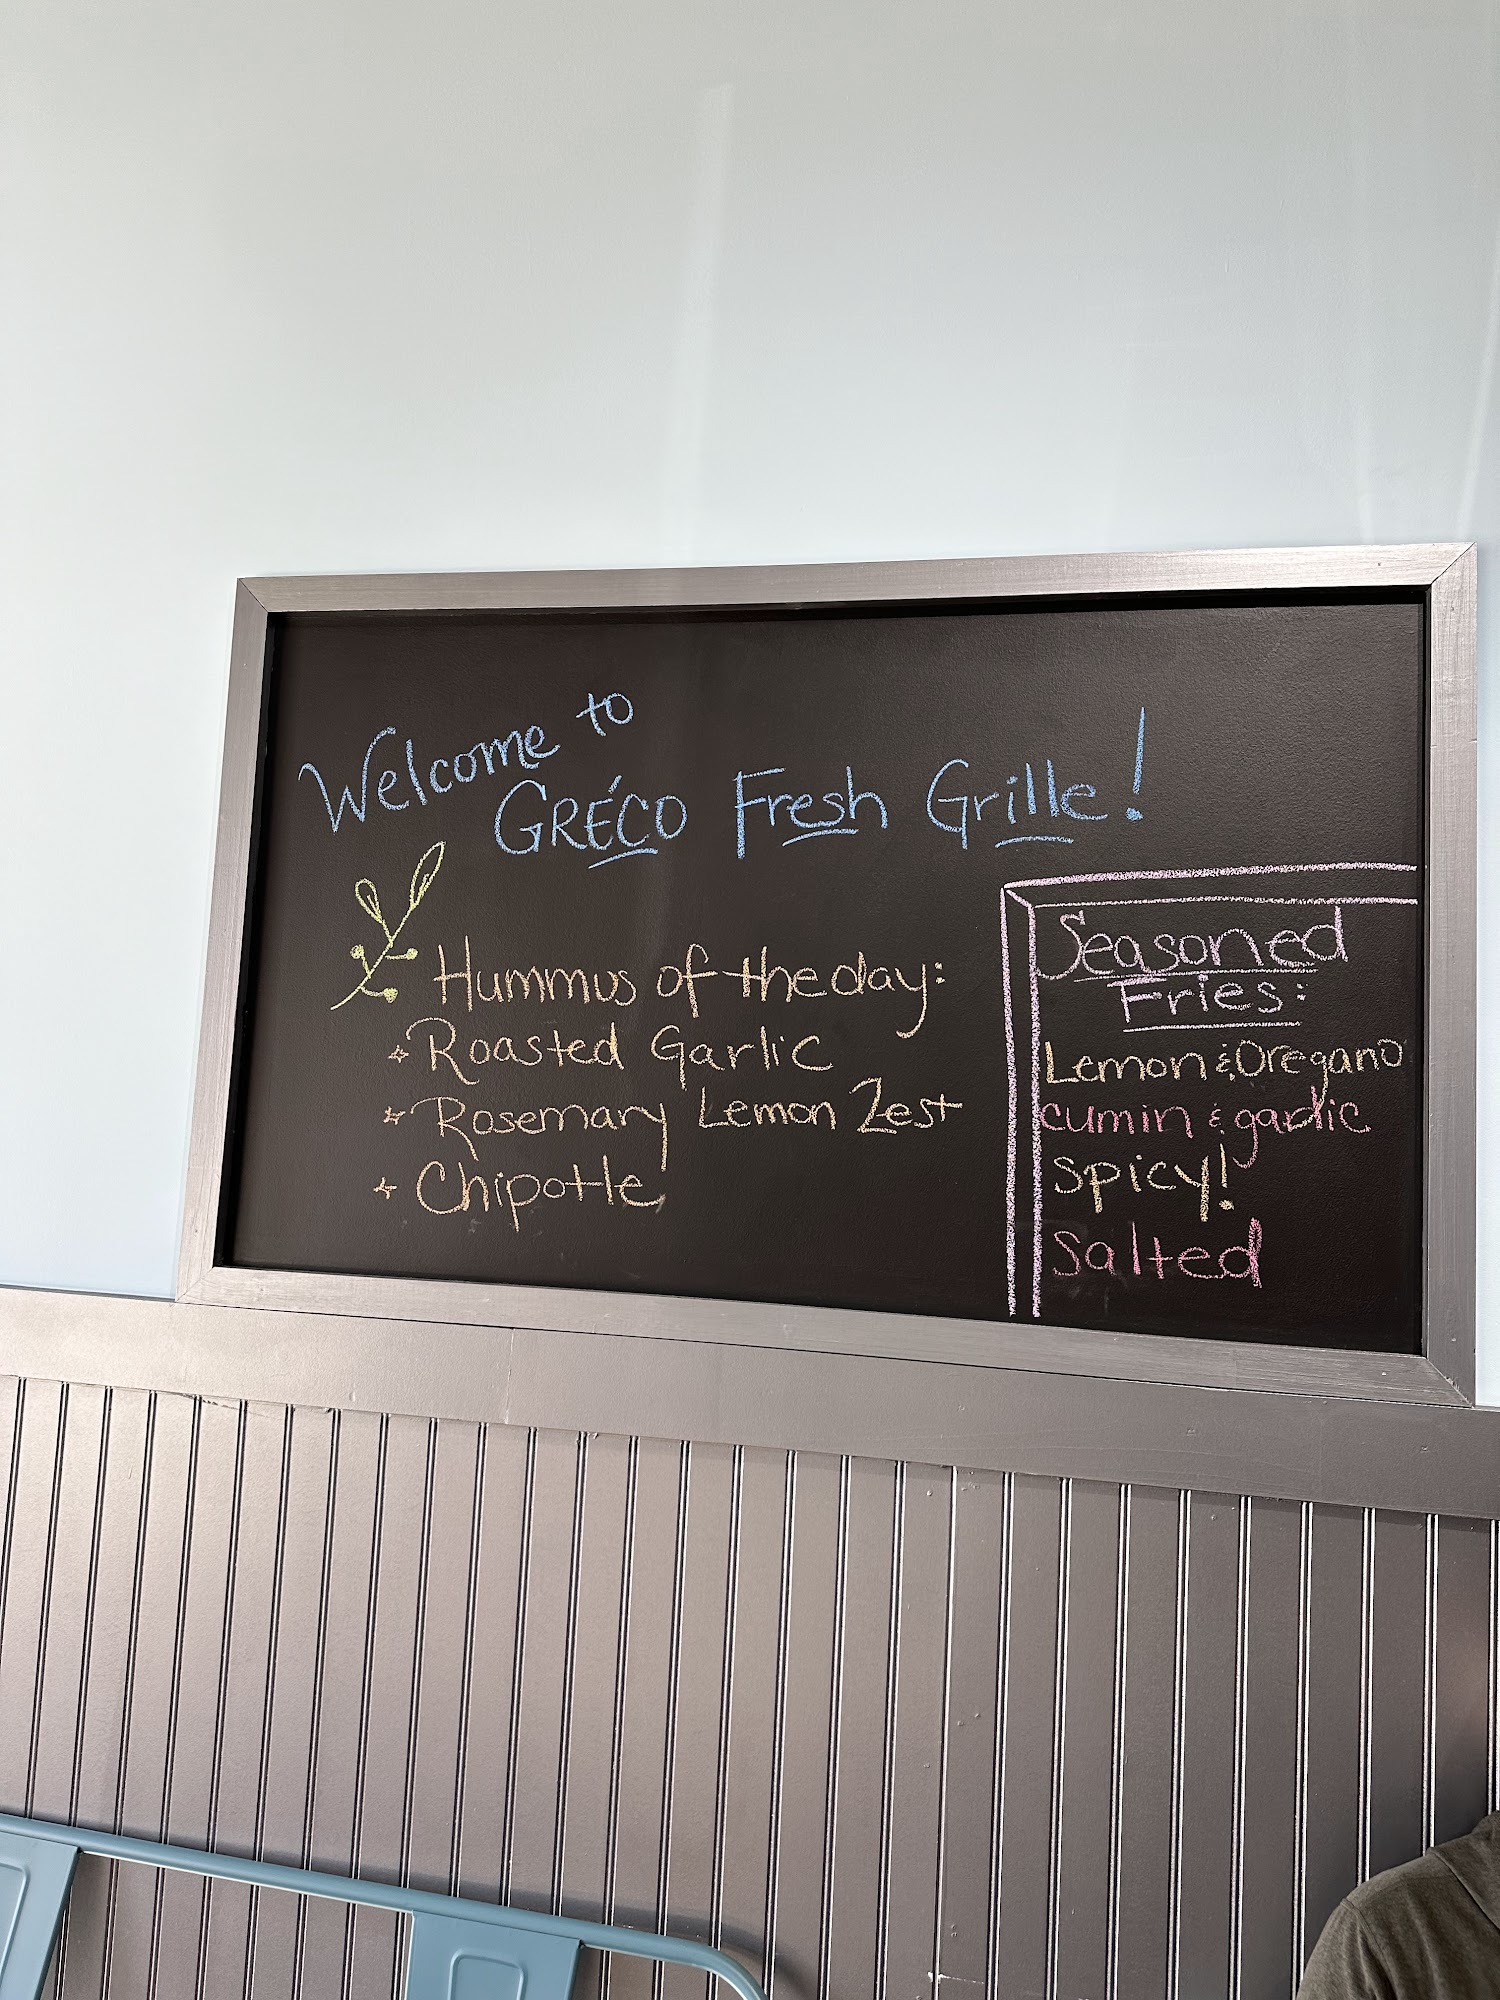 Welcome to
GRÉCO Fresh Grille!
Hummus of the day:
Roasted Garlic
Rosemary Lemon Zest
Chipotle
Seasoned
Fries:
Lemon & Oregano
cumin & garlic
spicy!
salted